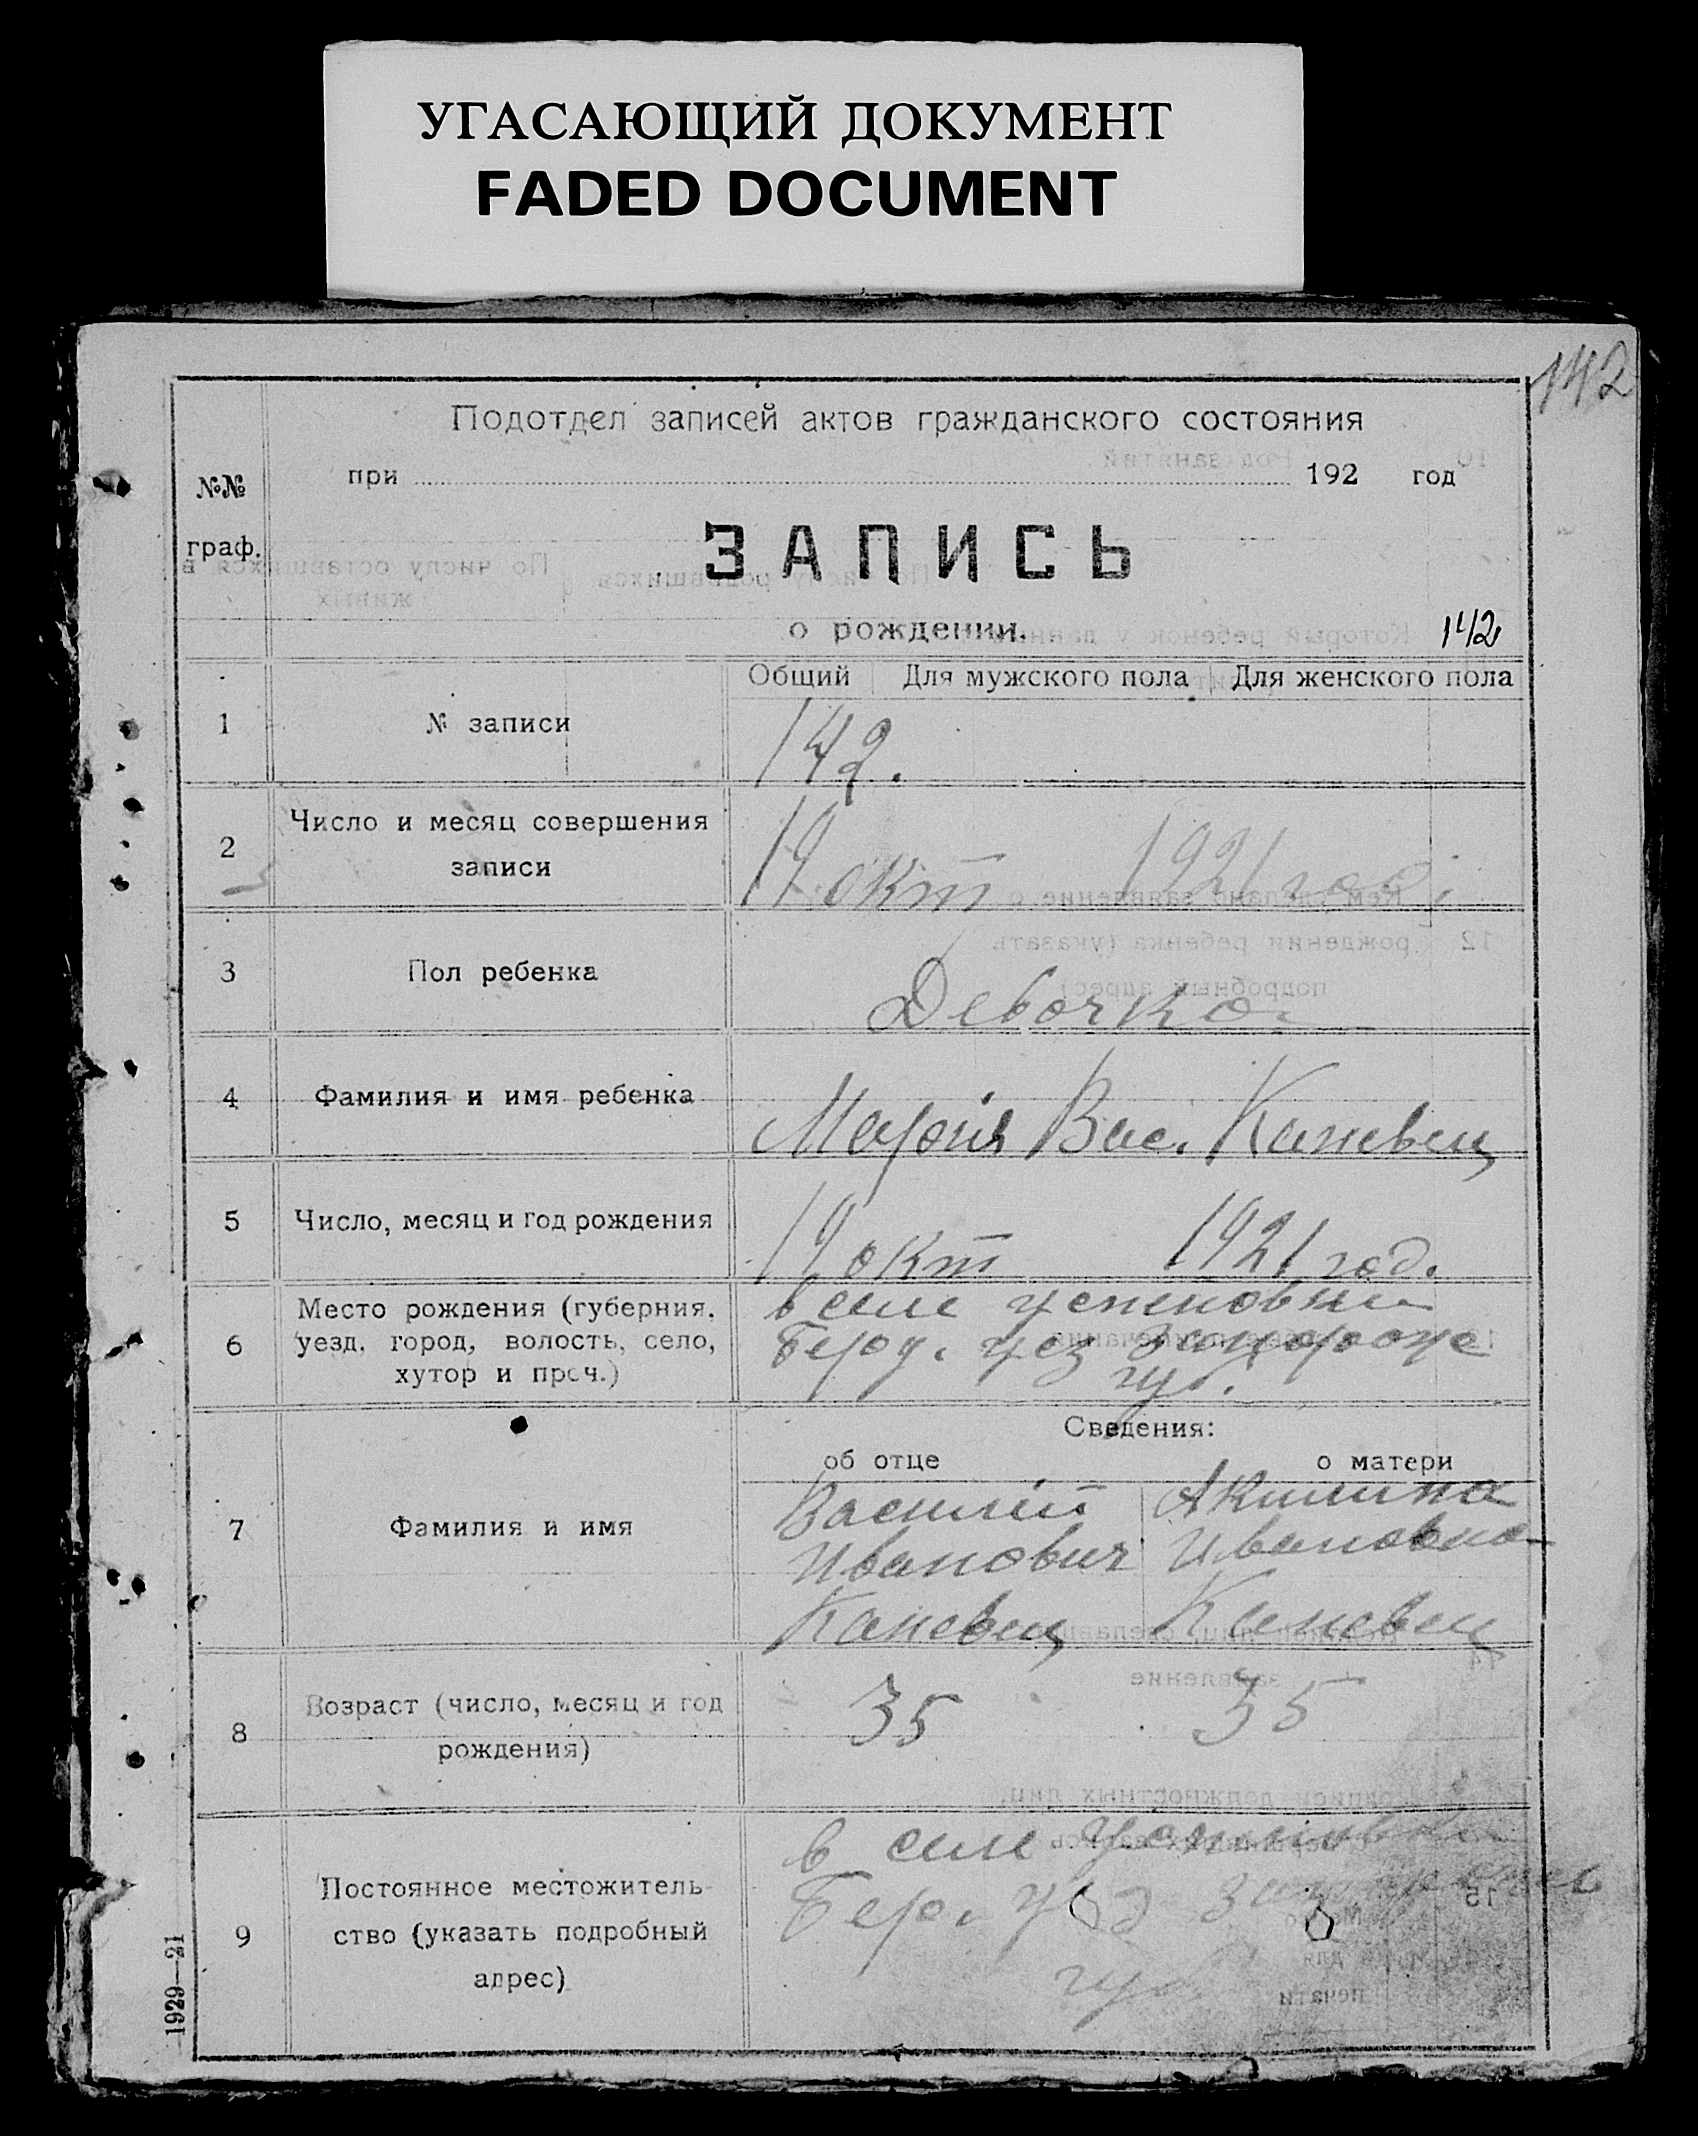 УГАСАЮЩИЙ ДОКУМЕНТ
FADED DOCUMENT
142
Подотдел записей актов гражданского состояния
при 192 год
№№
граф.
ЗАПИСЬ
о рождении.
142
Общий Для мужского пола Для женского пола
1 № записи 142.
2 Число и месяц совершения
записи
19 окт 1921 год
3 Пол ребенка Девочка
4 Фамилия и имя ребенка Марія Вас. Каневец
5 Число, месяц и год рождения 19 окт 1921 год.
6 Место рождения (губерния,
уезд, город, волость, село,
хутор и проч.)
в селе Успеновки
Берд. уез Запороже
губ.
Сведения:
об отце о матери
7 Фамилия и имя
Василий Акилина
Иванович Ивановна
Каневец Каневец
8 Возраст (число, месяц и год
рождения)
35 35
9 Постоянное местожитель-
ство (указать подробный
адрес)
в селе Успеновки
Бер. уез
губ
1929—21